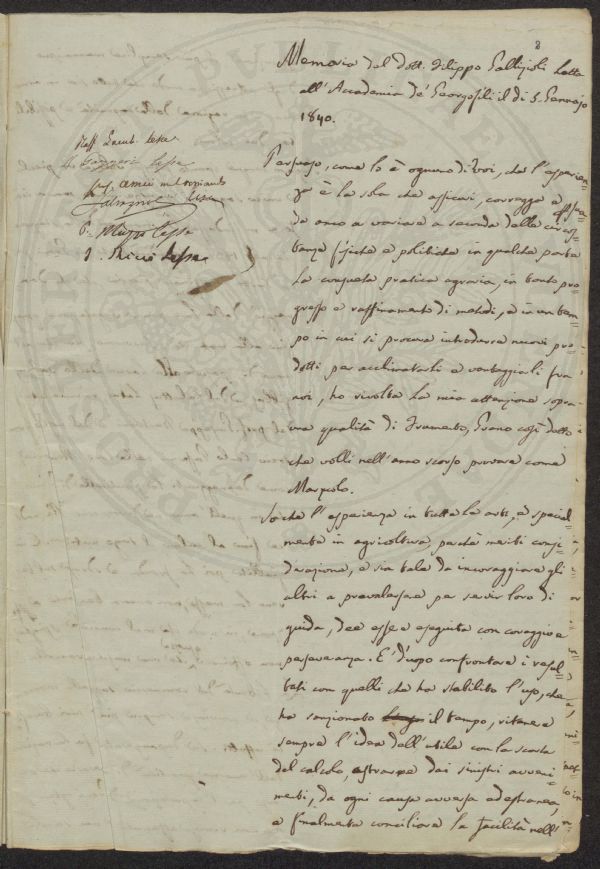 8
Memoria del Dott. Filippo Gallizioli Letta
all' Accademia de' Georgofili il dì 5. Gennajo
1840.
Raff. Lamb. lesse
lesse
lesse
lesse
lesse
Persuaso, come lo è ognuno di Voi, che l'esperien=
za è la sola che assicuri, corregga e
da anco a variare a seconda delle circos=
tanze fisiche e politiche in qualche parte
la consueta pratica agraria, in tanto pro=
gresso e raffinamento di metodi, e in un tem=
po in cui si procura introdurre nuovi pro=
dotti per acclimatarli e vantaggiarli fra
noi, ho rivolta la mia attenzione sopra
una qualità di Frumento, Grano così detto
che volli nell'anno scorso provare come
Marzolo.
So che l'esperienza in tutte le arti, e special=
mente in agricoltura, perchè meriti consi=
derazione, e sia tale da incoraggiare gli
altri a prevalersene per servir loro di
guida, dee essere eseguita con coraggio e
perseveranza. È d'uopo confrontare i resul=
tati con quelli che ha stabilito l'uso, che
ha sanzionato il tempo, ritenere
sempre l'idea dell'utile con la scorta
del calcolo, astrarre dai sinistri avveni=
menti, da ogni causa avversa ed estranea,
e finalmente conciliare la facilità nell'